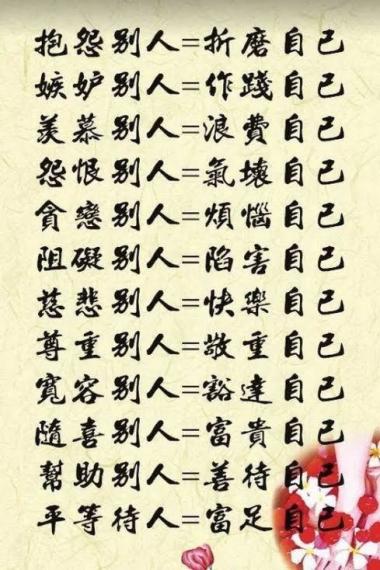 抱怨别人=折磨自己
嫉妒别人=作踐自己
羨慕别人=浪費自己
怨恨别人=氣壞自己
貪戀别人=煩惱自己
阻礙别人=陷害自己
慈悲别人=快樂自己
尊重别人=敬重自己
寬容别人=豁達自己
隨喜别人=富貴自己
幫助别人=善待自己
平等待人=富足自己